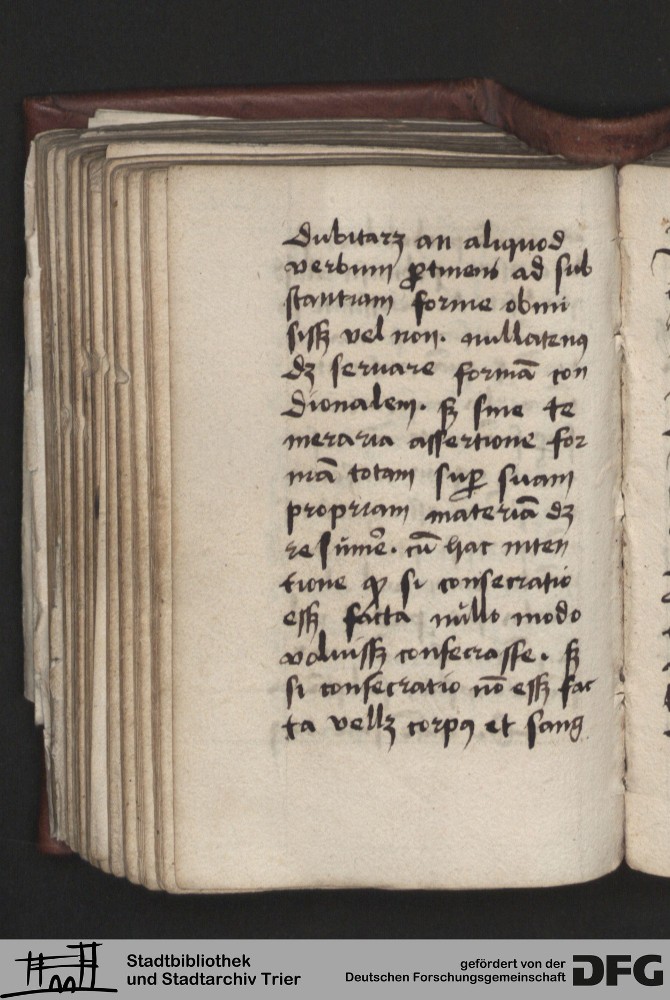 Dubitarꝫ an aliquod
verbum ꝑtinens ad sub
stantiam forme obmi
sissꝫ vel non. nullatenꝰ
dꝫ seruare formā con
dionalem. sꝫ sine te
meraria assertione for
mā totam suꝑ suam
propriam materiā dꝫ
resūmeꝛ̄. cū hac inten
tione ꝙ si consecratio
essꝫ facta nullo modo
voluissꝫ consecrasse. sꝫ
si consecratio nō essꝫ fac
ta vellꝫ corpꝰ et sang
Stadtbibliothek
und Stadtarchiv Trier
gefördert von der
Deutschen Forschungsgemeinschaft
DFG